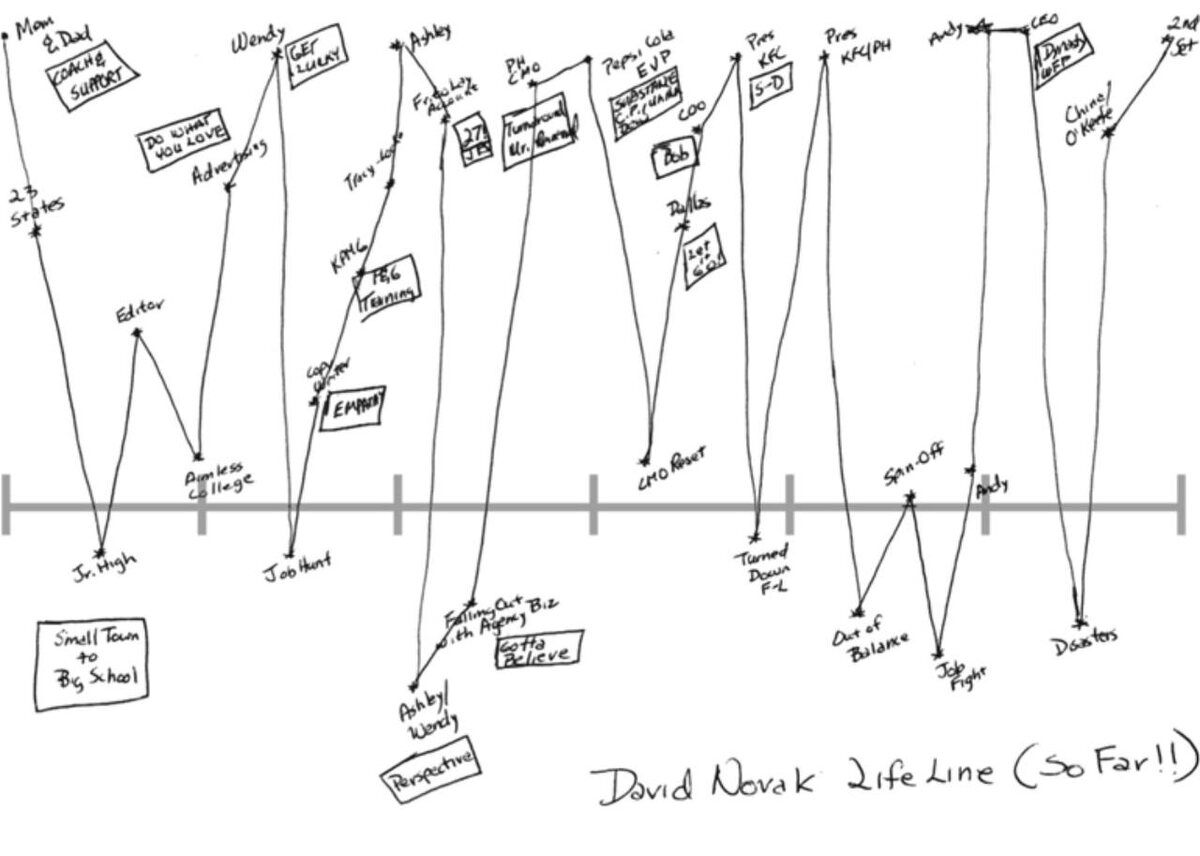 Mom
& Dad
COACH &
SUPPORT
23
States
Jr. High
Small Town
to
Big School
Editor
Aimless
College
DO WHAT
YOU LOVE
Advertising
Wendy
GET
LUCKY
Job Hunt
Copy
Writer
EMPATHY
KPM&G
TRAINING
Tracy-Locke
Ashley
Frito Lay
Account
27!
Ashley/
Wendy
Perspective
Falling Out
with Agency Biz
Gotta
Believe
PH
CMO
Turnaround
Mr.
Pepsi Cola
EVP
SUBSTANCE
CMO Reset
Dallas
Let
it
GO!
COO
Bob
Pres
KFC
S-D
Turned
Down
F-L
Pres
KFC/PH
Out of
Balance
Spin-Off
Job
Fight
Andy
Andy
CEO
A Dynasty
Disasters
China/
O'Keefe
2nd
Set
David Novak Life Line (So Far!!)